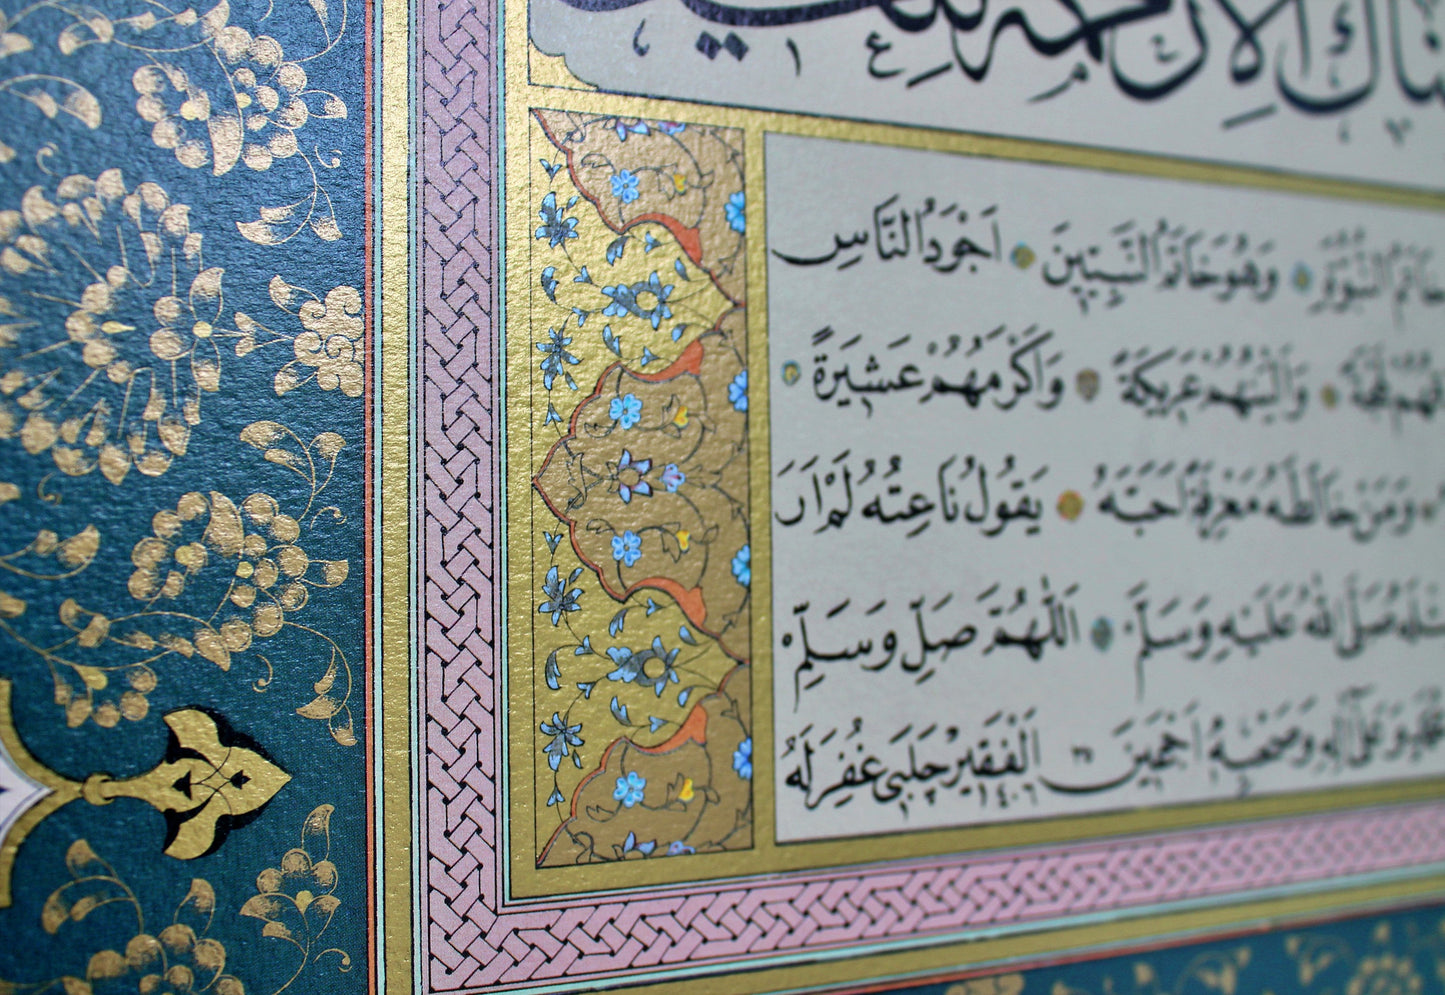 ـناك الا رحمة للعالمين
خَاتَمُ النُّبُوَّةِ وَهُوَ خَاتَمُ النَّبِيِّينَ اَجْوَدُ النَّاسِ
لَهْجَةً وَاَلْيَنُهُمْ عَرِيكَةً وَاَكْرَمُهُمْ عَشِيرَةً
وَمَنْ خَالَطَهُ مَعْرِفَةً اَحَبَّهُ يَقُولُ نَاعِتُهُ لَمْ اَرَ
صَلَّى اللهُ عَلَيْهِ وَسَلَّمَ اَللّٰهُمَّ صَلِّ وَسَلِّمْ
وَعَلَى آلِهِ وَصَحْبِهِ اَجْمَعِينَ اَلْفَقِيرْ چَلَبِي غُفِرَ لَهُ ١٤٠٦